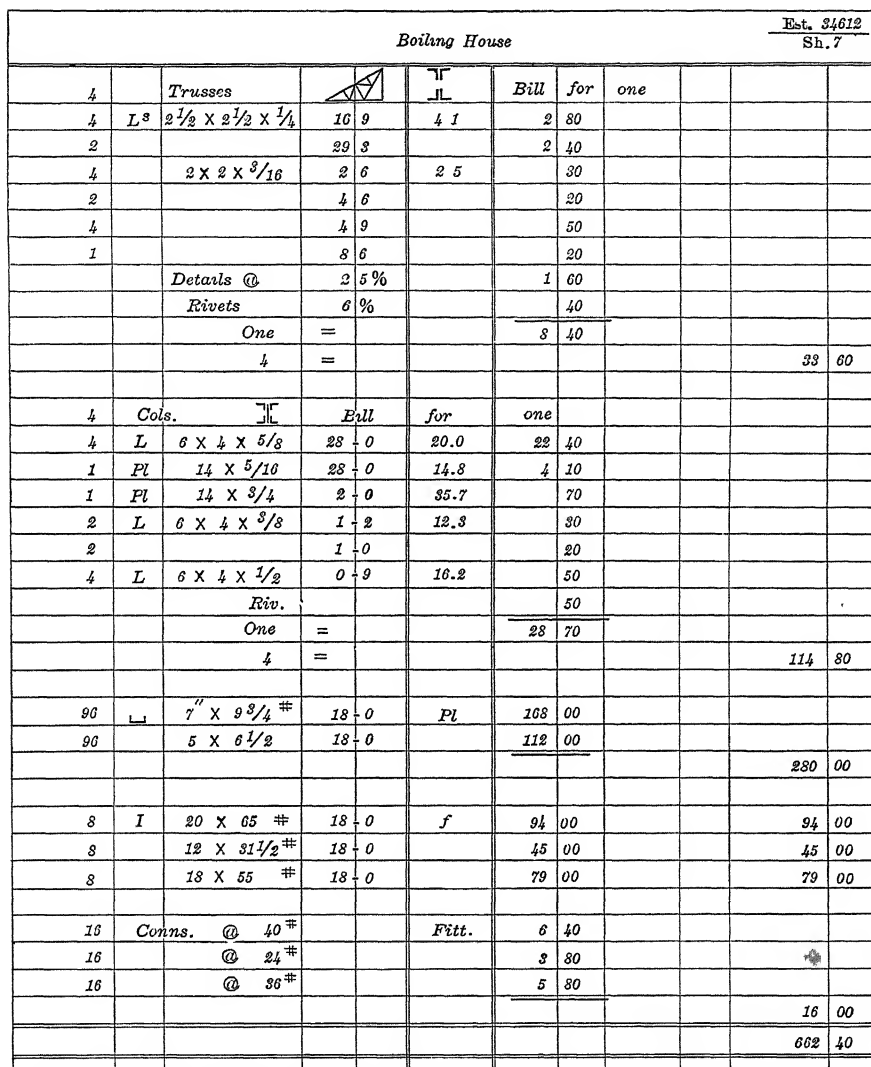 Est. 34612
Boiling House Sh. 7
4 Trusses Bill for one
4 Ls 2 1/2 X 2 1/2 X 1/4 16 9 4 1 2 80
2 29 3 2 40
4 2 X 2 X 3/16 2 6 2 5 30
2 4 6 20
4 4 9 50
1 8 6 20
Details @ 2 5% 1 60
Rivets 6 % 40
One = 8 40
4 = 33 60
4 Cols. Bill for one
4 L 6 X 4 X 5/8 28 - 0 20.0 22 40
1 Pl 14 X 5/16 28 - 0 14.8 4 10
1 Pl 14 X 3/4 2 - 0 35.7 70
2 L 6 X 4 X 3/8 1 - 2 12.3 30
2 1 - 0 20
4 L 6 X 4 X 1/2 0 - 9 16.2 50
Riv. 50
One = 28 70
4 = 114 80
96 7" X 9 3/4 # 18 - 0 Pl 168 00
96 5 X 6 1/2 18 - 0 112 00
280 00
8 I 20 X 65 # 18 - 0 f 94 00 94 00
8 12 X 31 1/2 # 18 - 0 45 00 45 00
8 18 X 55 # 18 - 0 79 00 79 00
16 Conns. @ 40 # Fitt. 6 40
16 @ 24 # 3 80
16 @ 36 # 5 80
16 00
662 40